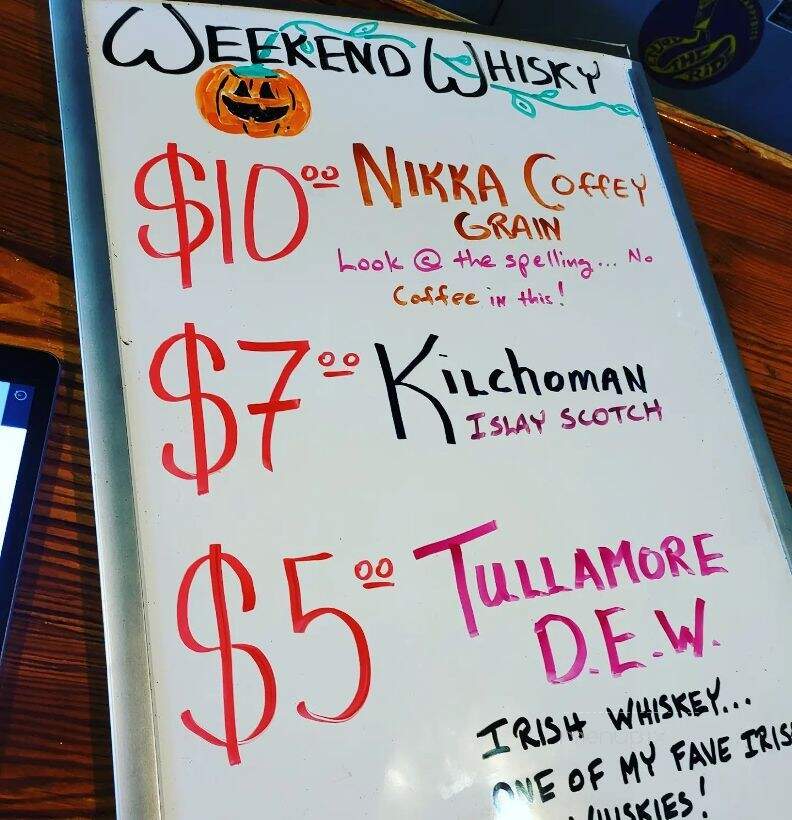 WEEKEND WHISKY
$10.00 NIKKA COFFEY
GRAIN
Look @ the spelling... No
Coffee in this!
$7.00 KILCHOMAN
ISLAY SCOTCH
$5.00 TULLAMORE
D.E.W.
IRISH WHISKEY...
ONE OF MY FAVE IRISH
WHISKIES!
ENJOY
THE
RIDE